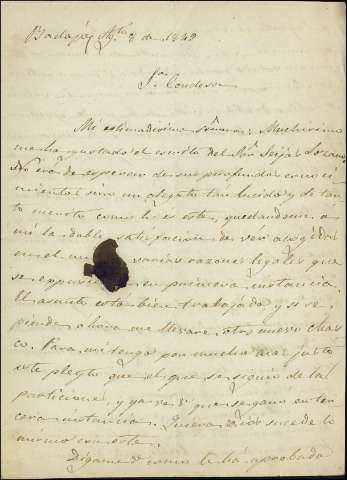 Badajóz Agto. 8 de 1849
Sra. Condesa
Mi estimadisima Señora: Muchisimo
me ha gustado el escrito del Sor. Seijas Lozano,
No era de esperar de sus profundos conoci
mientos sino un alegato tan lucido y de tan
to merito como lo es este, quedandome a
mi la doble satisfaccion de ver acogidas
en el varias razones legales que
se en primera instancia.
El asunto está bien trabajado y si se
pierde ahora me llevare otro nuevo chas
co. Para mi tengo por mucho mas justo
este pleyto que el que se siguio de la
particione, y ya ve V. que se gano en ter
cera instancia. Quiera Dios suceda lo
mismo con este.
Digame V. como le ha aprobado